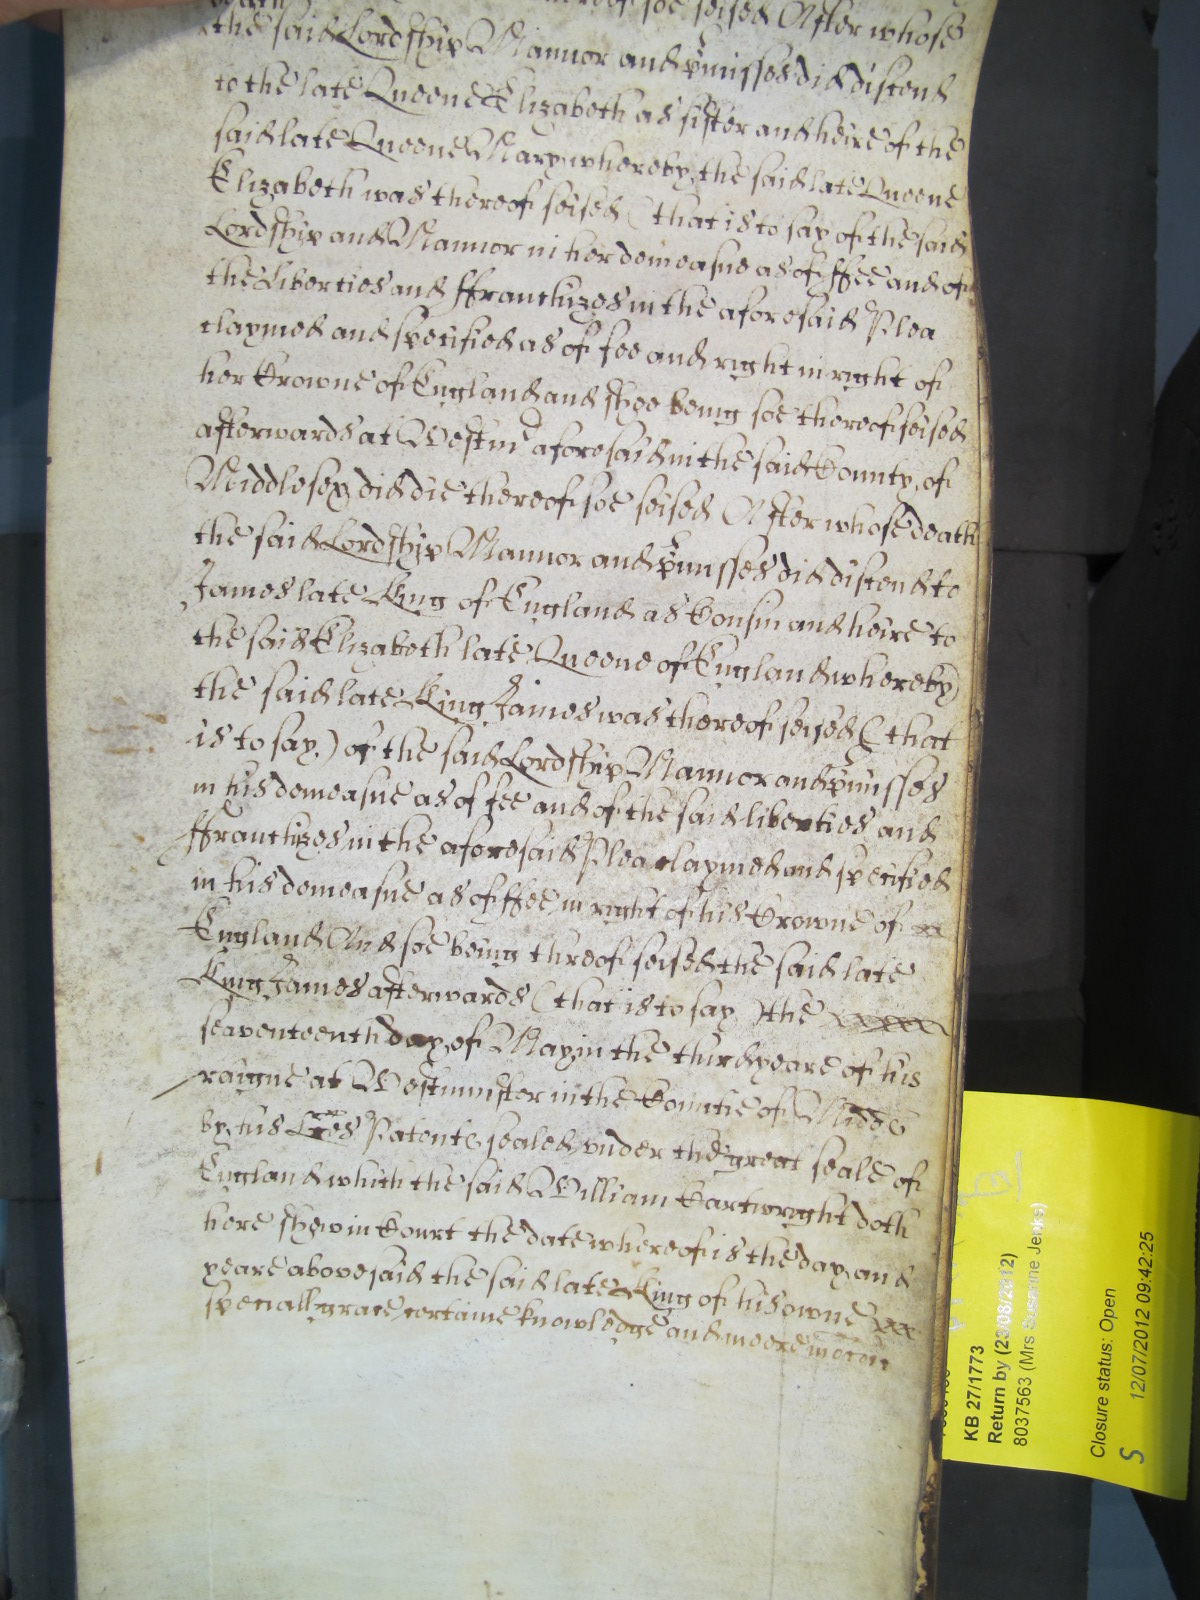 thereof soe seised After whose
the said Lordship Mannor and p'misses did discend
to the late Queene Elizabeth as sister and heire of the
said late Queene Mary whereby the said late Queene
Elizabeth was thereof seised (that is to say of the said
Lordship and Mannor in her demeasne as of ffee and of
the Liberties and ffranchizes in the aforesaid Plea
claymed and specified as of fee and right in right of
her Crowne of England and shee being soe thereof seised
afterwards at Westm' aforesaid in the said County of
Middlesex did die thereof soe seised After whose death
the said Lordship Mannor and p'misses did discend to
James late King of England as Cousin and heire to
the said Elizabeth late Queene of England whereby
the said late King James was thereof seised (that
is to say) of the said Lordship Mannor and p'misses
in his demeasne as of fee and of the said liberties and
ffranchizes in the aforesaid Plea claymed and specified
in his demeasne as of ffee in right of his Crowne of
England And soe being threof seised the said late
King James afterwards (that is to say) the
seaventeenth day of May in the third yeare of his
raigne at Westminster in the Countie of Midd
by his Lres Patents sealed under the great seale of
England which the said William Cartwright doth
here shew in Court the date whereof is the day and
yeare abovesaid the said late King of his owne
speciall grace certaine knowledge and meere mocon
KB 27/1773
Return by (23/08/2012)
8037563 (Mrs Susanne Jenks)
Closure status: Open
S 12/07/2012 09:42:25